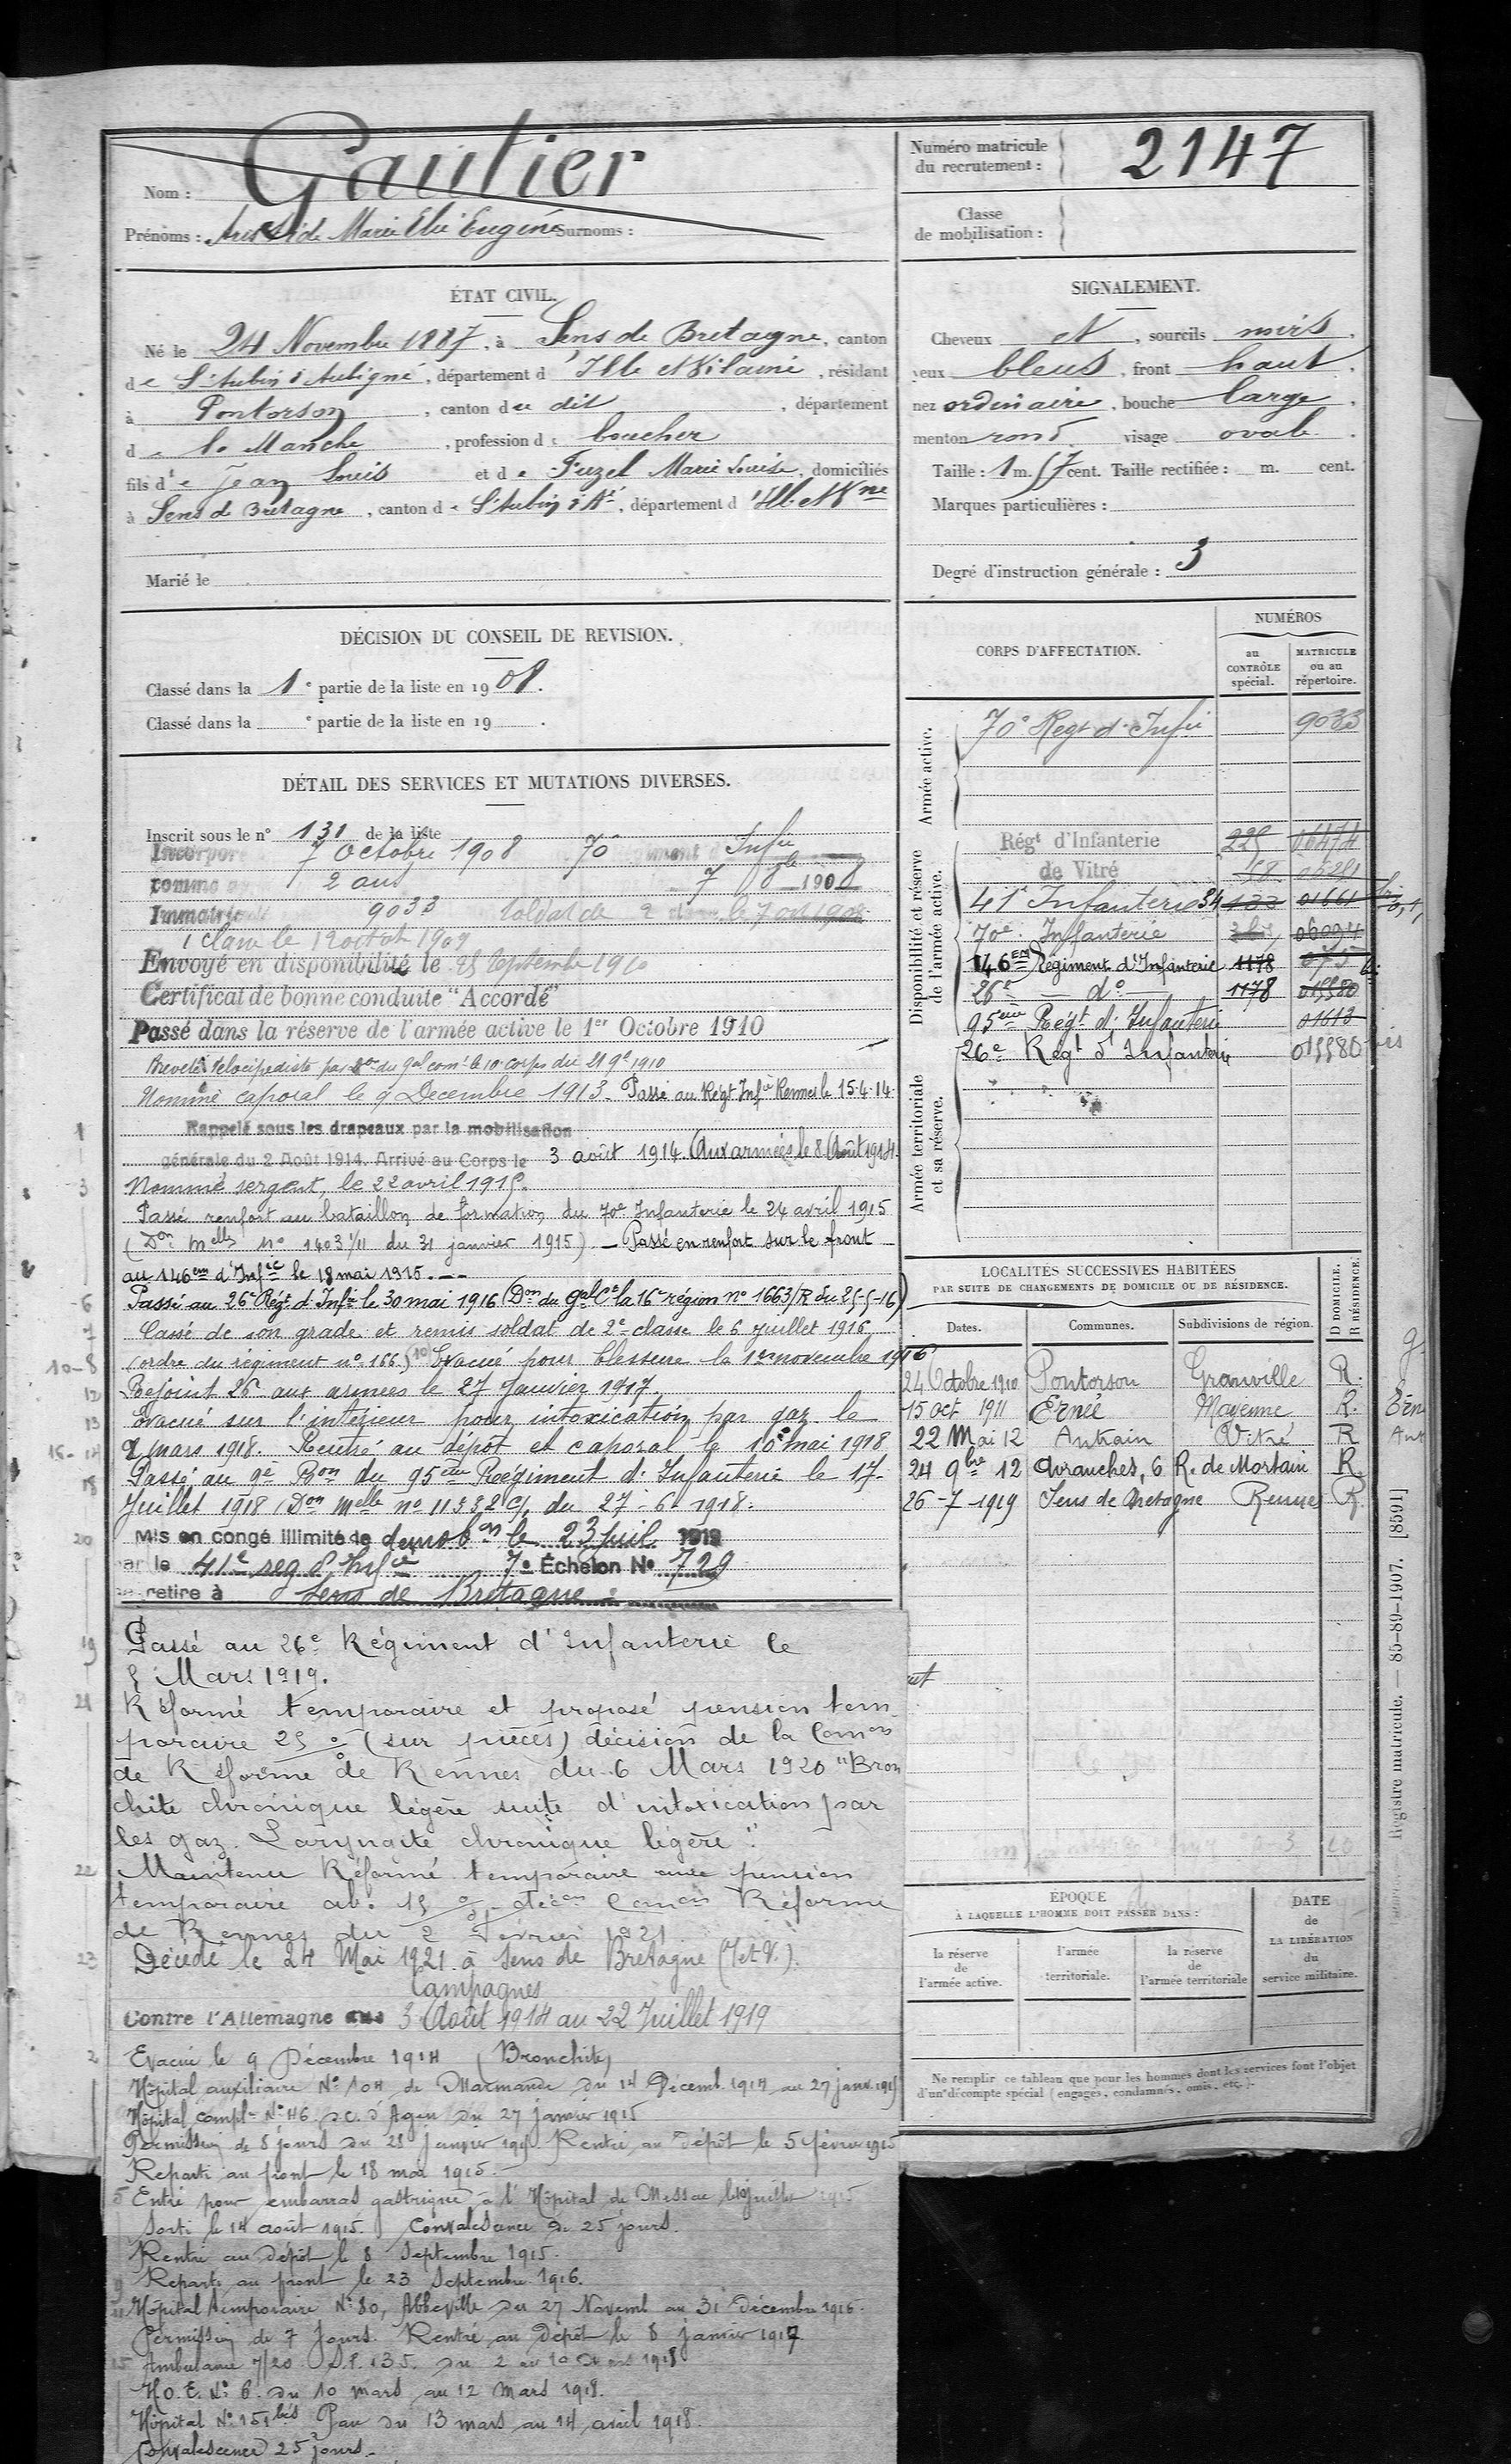 Nom : Gautier
Prénoms : Aristide Marie Elie Eugène Surnoms :
Numéro matricule
du recrutement :
2147
Classe
de mobilisation :
ÉTAT CIVIL.
Né le 24 Novembre 1887, à Sens de Bretagne, canton
de St Aubin d'Aubigné, département d'Ille et Vilaine, résidant
à Pontorson, canton du dit, département
de la Manche, profession de boucher
fils de Jean Louis et de Fuzel Marie Louise, domiciliés
à Sens de Bretagne, canton de St Aubin d'Aé, département d'Ille et Vne
Marié le
SIGNALEMENT.
Cheveux et, sourcils noirs,
yeux bleus, front haut,
nez ordinaire, bouche large,
menton rond, visage ovale.
Taille : 1 m. 57 cent. Taille rectifiée : m. cent.
Marques particulières :
Degré d'instruction générale : 3
DÉCISION DU CONSEIL DE REVISION.
Classé dans la 1e partie de la liste en 1908.
Classé dans la e partie de la liste en 19 .
DÉTAIL DES SERVICES ET MUTATIONS DIVERSES.
Inscrit sous le n° 131 de la liste
Incorporé 7 Octobre 1908 70 Infie
comme 2 ans 7 8bre 1908
Immatricule 9033 Soldat de 2 classe le 7 oct 1908
1 classe le 12 octob 1909
Envoyé en disponibilité le 25 Septembre 1910
Certificat de bonne conduite "Accordé"
Passé dans la réserve de l'armée active le 1er Octobre 1910
Breveté Vélocipédiste par Don du Gal comt le 10e corps du 21 9e 1910
Nommé caporal le 9 Decembre 1913. Passé au Régt Infie Rennes le 15-4-14.
Rappelé sous les drapeaux par la mobilisation
générale du 2 Août 1914. Arrivé au Corps le 3 août 1914. Aux armées le 8 Août 1914.
Nommé sergent, le 22 avril 1915.
Passé renfort au bataillon de formation du 70e Infanterie le 24 avril 1915
(Don Melle No 1403 1/11 du 31 janvier 1915). — Passé en renfort sur le front
au 146em d'Infie le 18 mai 1915. —
Passé au 26e Régt d'Infie le 30 mai 1916 (Don du Gal Ct la 16e région no 1663/R du 25-5-16)
Cassé de son grade et remis soldat de 2e classe le 6 juillet 1916
(ordre du régiment no 166). Evacué pour blessure le 1er novembre 1916
Rejoint 26e aux armées le 27 Janvier 1917.
Evacué sur l'intérieur pour intoxication par gaz le
2 mars 1918. Rentré au dépôt et caporal le 10 mai 1918
Passé au 9e Bon du 95em Régiment d'Infanterie le 17-
Juillet 1918 (Don Melle no 11332 C/, du 27-6-1918.
Mis en congé illimité de demobon le 23 Juil. 1919
par le 41e reg d'Infie 7e Échelon No 729
se retire à Sens de Bretagne
Passé au 26e Régiment d'Infanterie le
5 Mars 1919.
Réformé temporaire et proposé pension tem
poraire 25 % (sur pièces) décision de la Comon
de Réforme de Rennes du 6 Mars 1920 "Bron
chite chronique légère suite d'intoxication par
les gaz. Laryngite chronique légère".
Maintenu Réformé temporaire avec pension
temporaire de 15 % décon Comon Réforme
de Rennes du 2 Février 1921.
Décédé le 24 Mai 1921 à Sens de Bretagne (I et V.).
Campagnes
Contre l'Allemagne du 3 Août 1914 au 22 Juillet 1919
Evacué le 9 Décembre 1914 (Bronchite)
Hôpital auxiliaire No 104 de Marmande du 14 Décemb. 1914 au 27 janv. 1915
Hôpital compl. No 46 d'Agen du 27 janvier 1915
Permission de 8 jours du 28 janvier 1915. Rentré au dépôt le 5 février 1915
Reparti au front le 18 mai 1915.
Entré pour embarras gastrique à l'Hôpital de Messac le juillet 1915
Sorti le 14 août 1915. Convalescence de 25 jours.
Rentré au dépôt le 8 Septembre 1915.
Reparti au front le 23 Septembre 1916.
Hôpital temporaire No 80, Abbeville du 27 Novemb. au 31 Décembre 1916.
Permission de 7 jours. Rentré au dépôt le 8 janvier 1917.
Ambulance 7/20 S.P. 135. du 2 au 10 Mars 1918
H.O.E. No 6. du 10 mars au 12 mars 1918.
Hôpital No 151 bis Pau du 13 mars au 14 avril 1918.
Convalescence 25 jours.
CORPS D'AFFECTATION.
NUMÉROS
au CONTRÔLE spécial.
MATRICULE ou au répertoire.
Armée active.
70e Régt d'Infie 9033
Disponibilité et réserve de l'armée active.
Régt d'Infanterie 225 06474
de Vitré 58 05281
41e Infanterie 34 01661
70e Infanterie 06094
146EM Régiment d'Infanterie 1178 075
26e — do — 1178 01580
95eme Régt d'Infanterie 01613
26e Régt d'Infanterie 015580 bis
Armée territoriale et sa réserve.
LOCALITÉS SUCCESSIVES HABITÉES
PAR SUITE DE CHANGEMENTS DE DOMICILE OU DE RÉSIDENCE.
Dates. Communes. Subdivisions de région. D DOMICILE. R RÉSIDENCE.
24 Octobre 1910 Pontorson Granville R.
15 oct 1911 Ernée Mayenne R.
22 Mai 12 Antrain Vitré R
24 9bre 12 Avranches, 6 R. de Mortain R.
26-7-1919 Sens de Bretagne Rennes R
ÉPOQUE
À LAQUELLE L'HOMME DOIT PASSER DANS :
la réserve de l'armée active.
l'armée territoriale.
la réserve de l'armée territoriale
DATE de LA LIBÉRATION du service militaire.
Ne remplir ce tableau que pour les hommes dont les services font l'objet
d'un décompte spécial (engagés, condamnés, omis, etc.).
Registre matricule. — 85-89-1907. [8591]